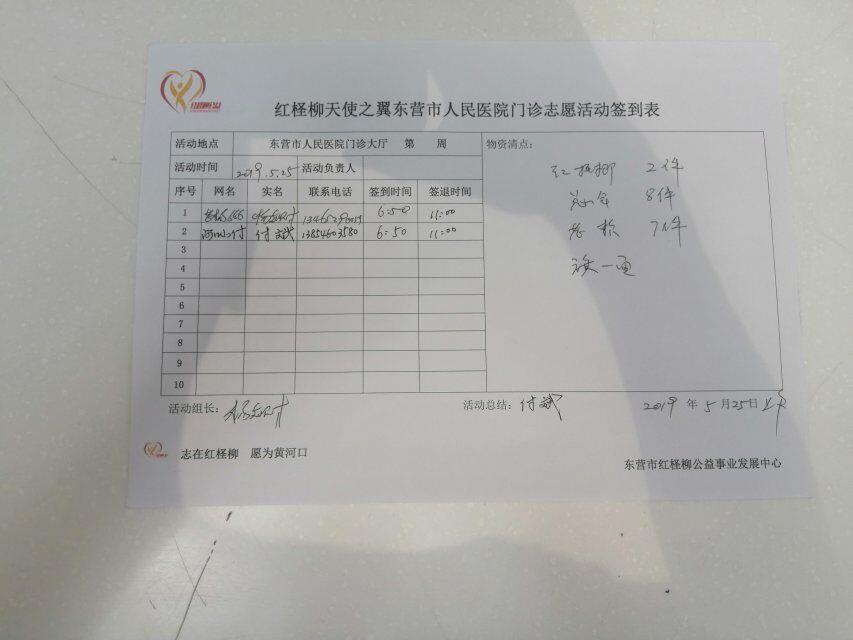 红柽柳天使之翼东营市人民医院门诊志愿活动签到表
活动地点 东营市人民医院门诊大厅 第 周
活动时间 2019.5.25 活动负责人
序号 网名 实名 联系电话 签到时间 签退时间
1 6:50 11:00
2 付斌 13854603580 6:50 11:00
3
4
5
6
7
8
9
10
物资清点:
红柽柳 2件
8件
7件
旗一面
活动组长:
活动总结: 付斌
2019 年 5 月 25 日 上午
志在红柽柳 愿为黄河口
东营市红柽柳公益事业发展中心